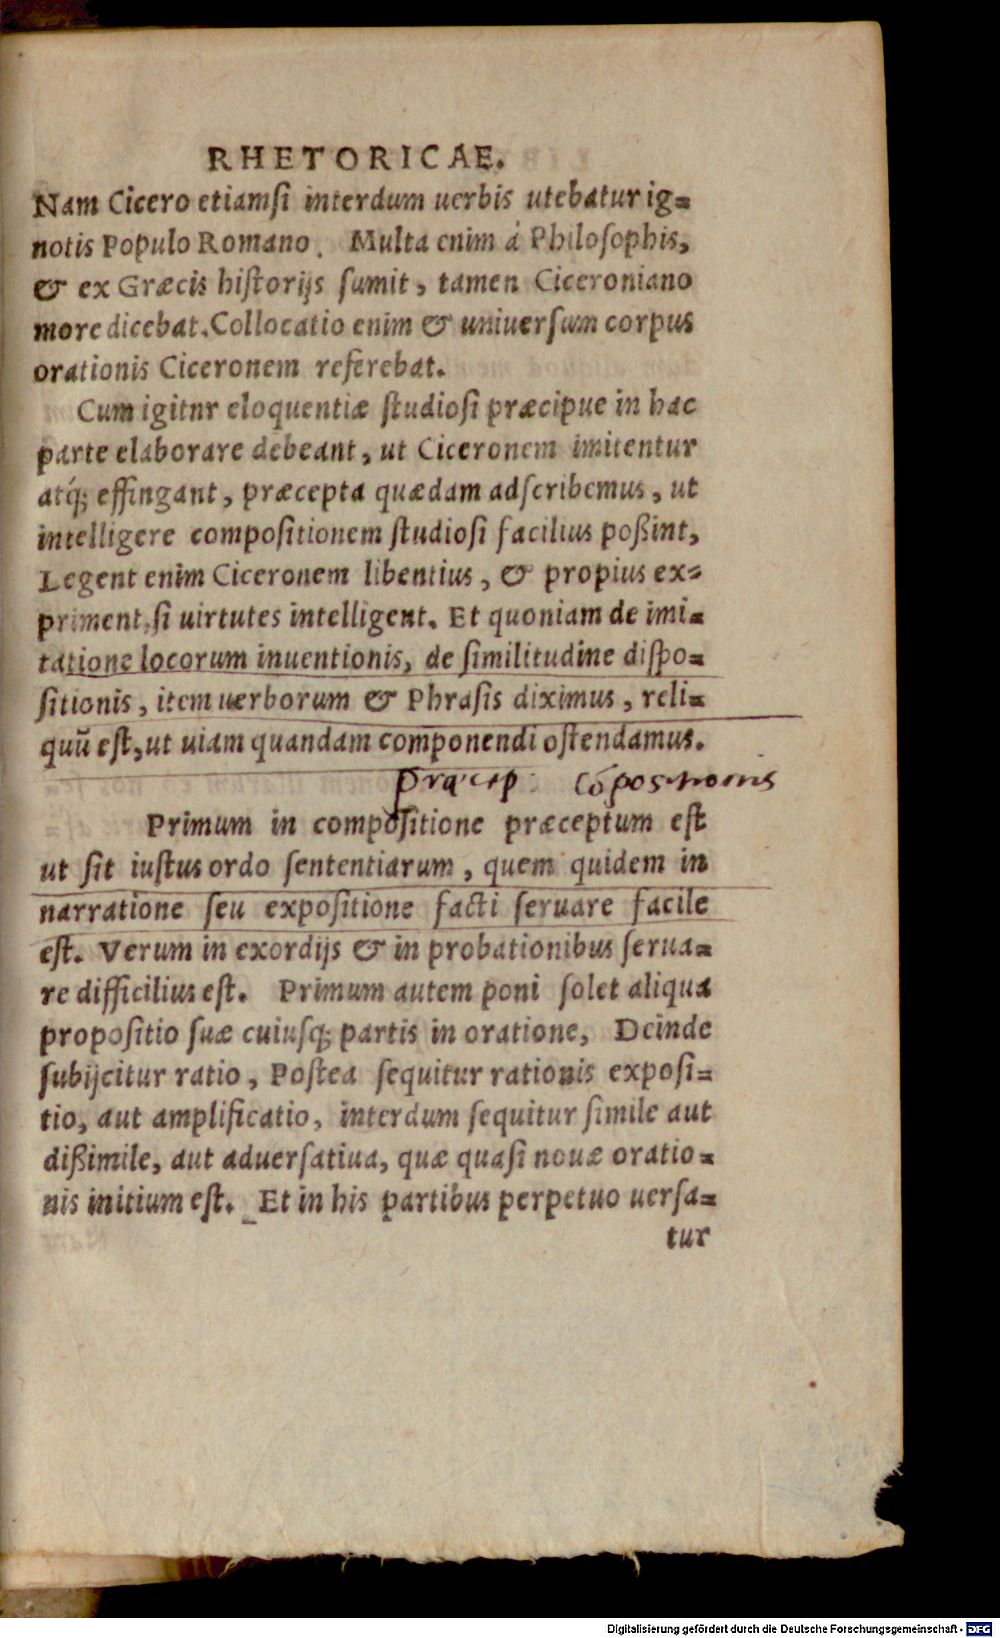 RHETORICAE.
Nam Cicero etiamſi interdum uerbis utebatur ig=
notis Populo Romano. Multa enim á Philoſophis,
& ex Græcis hiſtorijs ſumit, tamen Ciceroniano
more dicebat. Collocatio enim & uniuerſum corpus
orationis Ciceronem referebat.
Cum igitnr eloquentiæ ſtudioſi præcipue in hac
parte elaborare debeant, ut Ciceronem imitentur
atq́; effingant, præcepta quædam adſcribemus, ut
intelligere compoſitionem ſtudioſi facilius poßint,
Legent enim Ciceronem libentius, & propius ex=
priment, ſi uirtutes intelligent. Et quoniam de imi=
tatione locorum inuentionis, de ſimilitudine diſpo=
ſitionis, item uerborum & Phraſis diximus, reli=
quũ eſt, ut uiam quandam componendi oſtendamus.
præcep: Cõpositionis
Primum in compoſitione præceptum eſt
ut ſit iuſtus ordo ſententiarum, quem quidem in
narratione ſeu expoſitione facti ſeruare facile
eſt. Verum in exordijs & in probationibus ſerua=
re difficilius eſt. Primum autem poni ſolet aliqua
propoſitio ſuæ cuiuſq; partis in oratione, Deinde
ſubijcitur ratio, Poſtea ſequitur rationis expoſi=
tio, aut amplificatio, interdum ſequitur ſimile aut
dißimile, aut aduerſatiua, quæ quaſi nouæ oratio=
nis initium eſt. Et in his partibus perpetuo uerſa=
tur
Digitalisierung gefördert durch die Deutsche Forschungsgemeinschaft - DFG